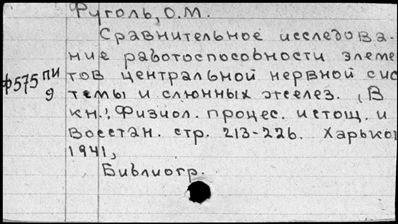 Фуголь, О.М.
Сравнительное исследова-
ние работоспособности элеме
тов центральной нервной сис
ф575 пи 9
темы и слюнных желез. (В
кн.: Физиол. процес. истощ. и
Восстан. стр. 213-226. Харьков
1941,
Библиогр.